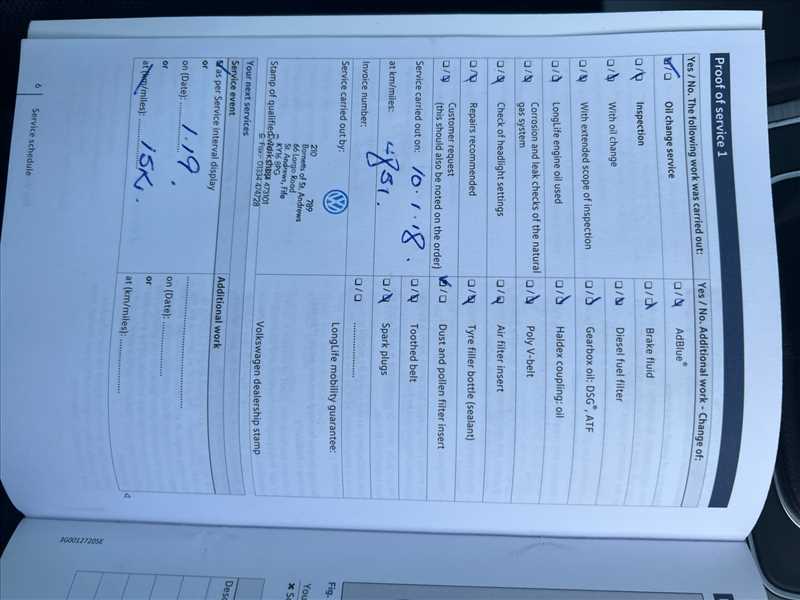 Proof of service 1
Yes / No. The following work was carried out:
Oil change service
Inspection
With oil change
With extended scope of inspection
LongLife engine oil used
Corrosion and leak checks of the natural
gas system
Check of headlight settings
Repairs recommended
Customer request
(this should also be noted on the order)
Service carried out on: 10.1.18.
at km/miles: 4851.
Invoice number:
Service carried out by:
210 789
Barnets of St. Andrews
66 Largo Road
St. Andrews, Fife
KY16 8PG
Stamp of qualified workshop
Yes / No. Additional work - Change of:
AdBlue®
Brake fluid
Diesel fuel filter
Gearbox oil: DSG®, ATF
Haldex coupling: oil
Poly V-belt
Air filter insert
Tyre filler bottle (sealant)
Dust and pollen filter insert
Toothed belt
Spark plugs
....................
LongLife mobility guarantee:
Volkswagen dealership stamp
Your next services
Service event
as per Service interval display
or
on (Date): 1.19.
or
at (km/miles): 15K.
Additional work
on (Date): ....................
or
at (km/miles): ....................
6 Service schedule
3G0012720SE
Fig.
You
Desc